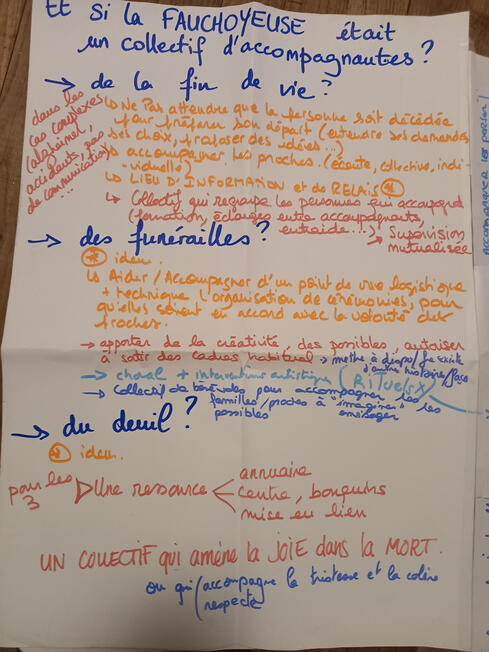 Et si la FAUCHOYEUSE était
un collectif d'accompagnautes?
→ de la fin de vie?
dans les
cas complexes
(alzheimer,
accidents, pas
de communication)
↳ Ne pas attendre que la personne soit décédée
pour préparer son départ (entendre ses demandes
ses choix, proposer des idées...)
↳ accompagner les proches. (écoute, collective, indi-
viduelle)
↳ LIEU D'INFORMATION et de RELAIS *
↳ Collectif qui regroupe les personnes qui accompagnent
(formation, échanges entre accompagnants,
entraide...) → Supervision
mutualisée
→ des funérailles?
* idem.
↳ Aider / Accompagner d'un point de vue logistique
+ technique l'organisation de cérémonies, pour
qu'elles soient en accord avec la volonté des
proches.
→ apporter de la créativité, des possibles, autoriser
à sortir des cadres habituel → mettre à dispo
d'autres histoires
→ choral + interventions artistiques (RITUEL(S)X
→ Collectif de bénévoles pour accompagner les
familles/proches à "imaginer" les
possibles envisager
→ du deuil?
* idem.
pour les
3
▷ Une ressource < annuaire
centre, bouquins
mise en lien
UN COLLECTIF qui amène la JOIE dans la MORT.
ou qui/accompagne la tristesse et la colère
respecte
ACCOMPAGNER les